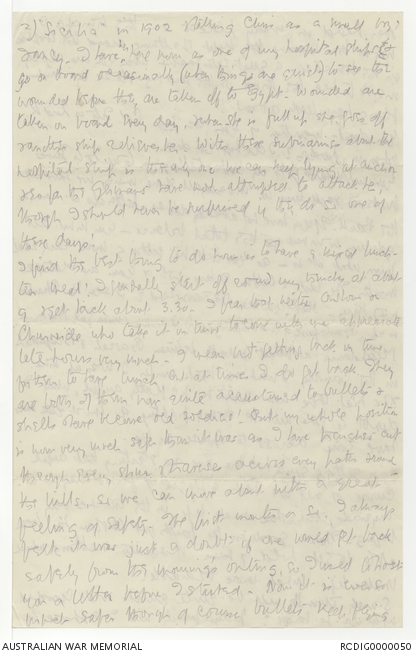 2) "Sicilia" in 1902 visiting China as a small boy.
Fancy. I have her now as one of my hospital ships &
go on board occasionally (when things are quiet) to see the
wounded before they are taken off to Egypt. Wounded are
taken on board every day, when she is full up she goes off
& another ship relieves her. With these submarines about the
hospital ship is the only one we can keep lying at anchor
& so far the Germans have not attempted to attack her,
though I should never be surprised if they do so one of
these days.
I find the best thing to do here is to have a
tea meal. I usually start off round my trenches at about
9 & get back about 3.30. I fear that neither Onslow or
Chauvel who take it in turns to come with me appreciate
late hours very much. I mean not getting back in time
for them to have lunch, but at times I do get back. They
are both of them now quite accustomed to bullets &
shells & have become old soldiers. But my whole position
is now very much safer than it was as I have trenches cut
through every & traverses across every path round
the hills, so we can move about with a great
feeling of safety. The first month or so I always
felt it was just a doubt if one would get back
safely from the mornings outing, so I used to
you a letter before I started. Now it is ever so
much safer though of course bullets keep flying
AUSTRALIAN WAR MEMORIAL
RCDIG0000050